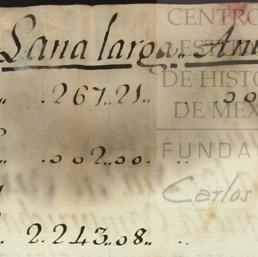 Lana larga.. Ani
.. .267.21.. ..00
.. .002.00. ..
. 2.243.08.. ..
CENTRO
DE HISTO
DE MÉX
FUNDA
Carlos